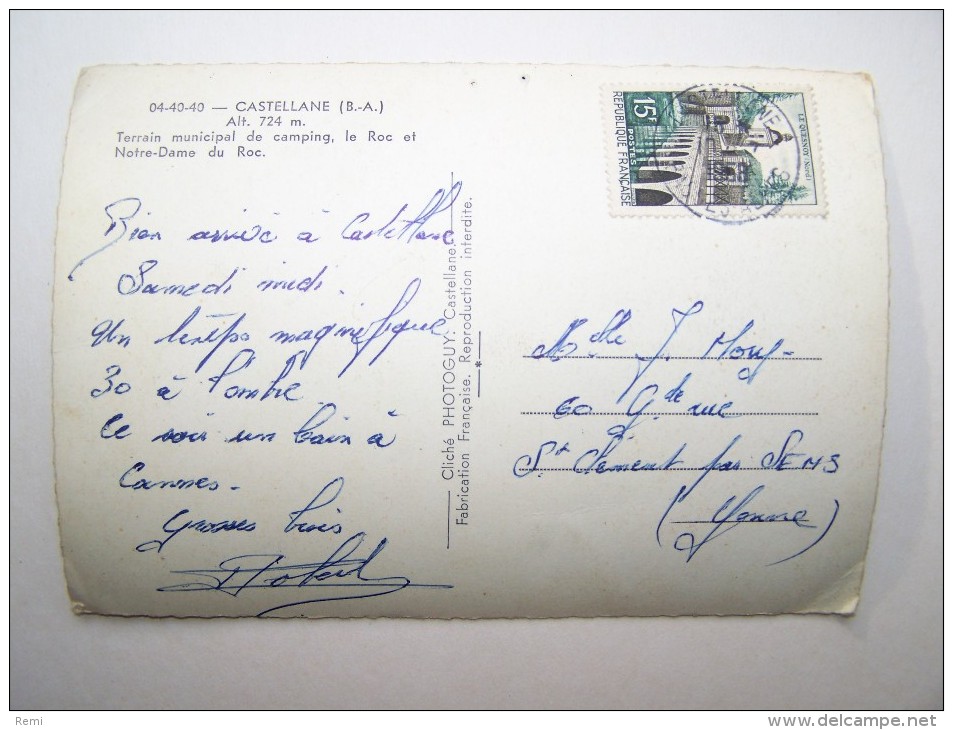 04-40-40 — CASTELLANE (B.-A.)
Alt. 724 m.
Terrain municipal de camping, le Roc et
Notre-Dame du Roc.
Bien arrivé à Castellane
Samedi midi.
Un temps magnifique
30 à l'ombre
Ce soir un bain à
Cannes.
Grosses bises
Cliché PHOTOGUY. Castellane.
Fabrication Française. Reproduction interdite.
15F
POSTES
REPUBLIQUE FRANÇAISE
LE QUESNOY (Nord)
CASTELLANE
Melle J.
60 Gde rue
St Clément par SENS
(Yonne)
Remi
www.delcampe.net